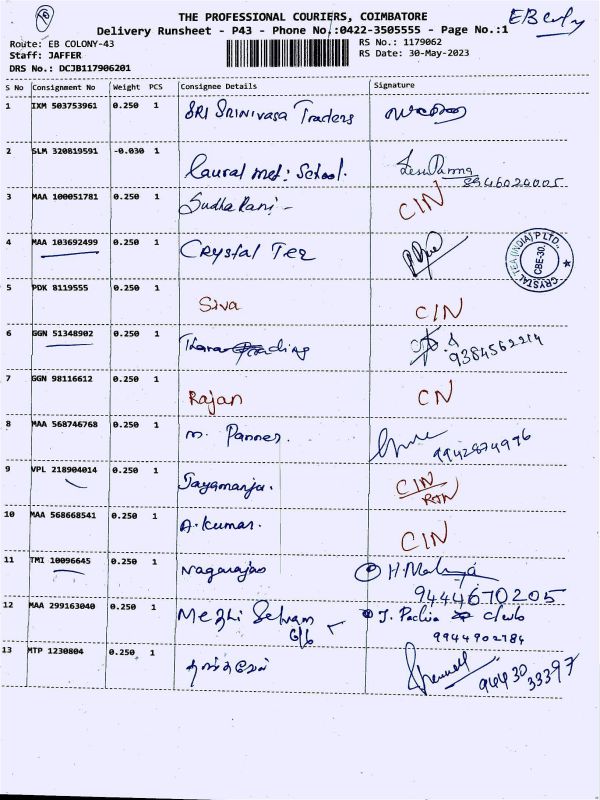 THE PROFESSIONAL COURIERS, COIMBATORE
Delivery Runsheet - P43 - Phone No.:0422-3505555 - Page No.:1
EB Colny
Route: EB COLONY-43
RS No.: 1179062
Staff: JAFFER
RS Date: 30-May-2023
DRS No.: DCJB117906201
S No Consignment No Weight PCS Consignee Details Signature
1 IXM 503753961 0.250 1 SRI SRINIVASA Traders
2 SLM 320819591 -0.030 1 Laural met: School.
8946024005
3 MAA 100051781 0.250 1 Sudha Rani - CIN
4 MAA 103692499 0.250 1 CRYSTAL TEE
CRYSTAL TEA (INDIA) P LTD., CBE-30. ★
5 PDK 8119555 0.250 1 Siva CIN
6 GGN 51348902 0.250 1 Thara Trading
9384562214
7 GGN 98116612 0.250 1 Rajan CN
8 MAA 568746768 0.250 1 M. Panner.
9942874996
9 VPL 218904014 0.250 1 Jayamanja. CIN
RTN
10 MAA 568668541 0.250 1 A. Kumar. CIN
11 TMI 10096645 0.250 1 Nagarajao H. Malaya
9444670205
12 MAA 299163040 0.250 1 Mezhi Selvam J. Pachia
G/6
9944902784
13 MTP 1230804 0.250 1
94430
33397